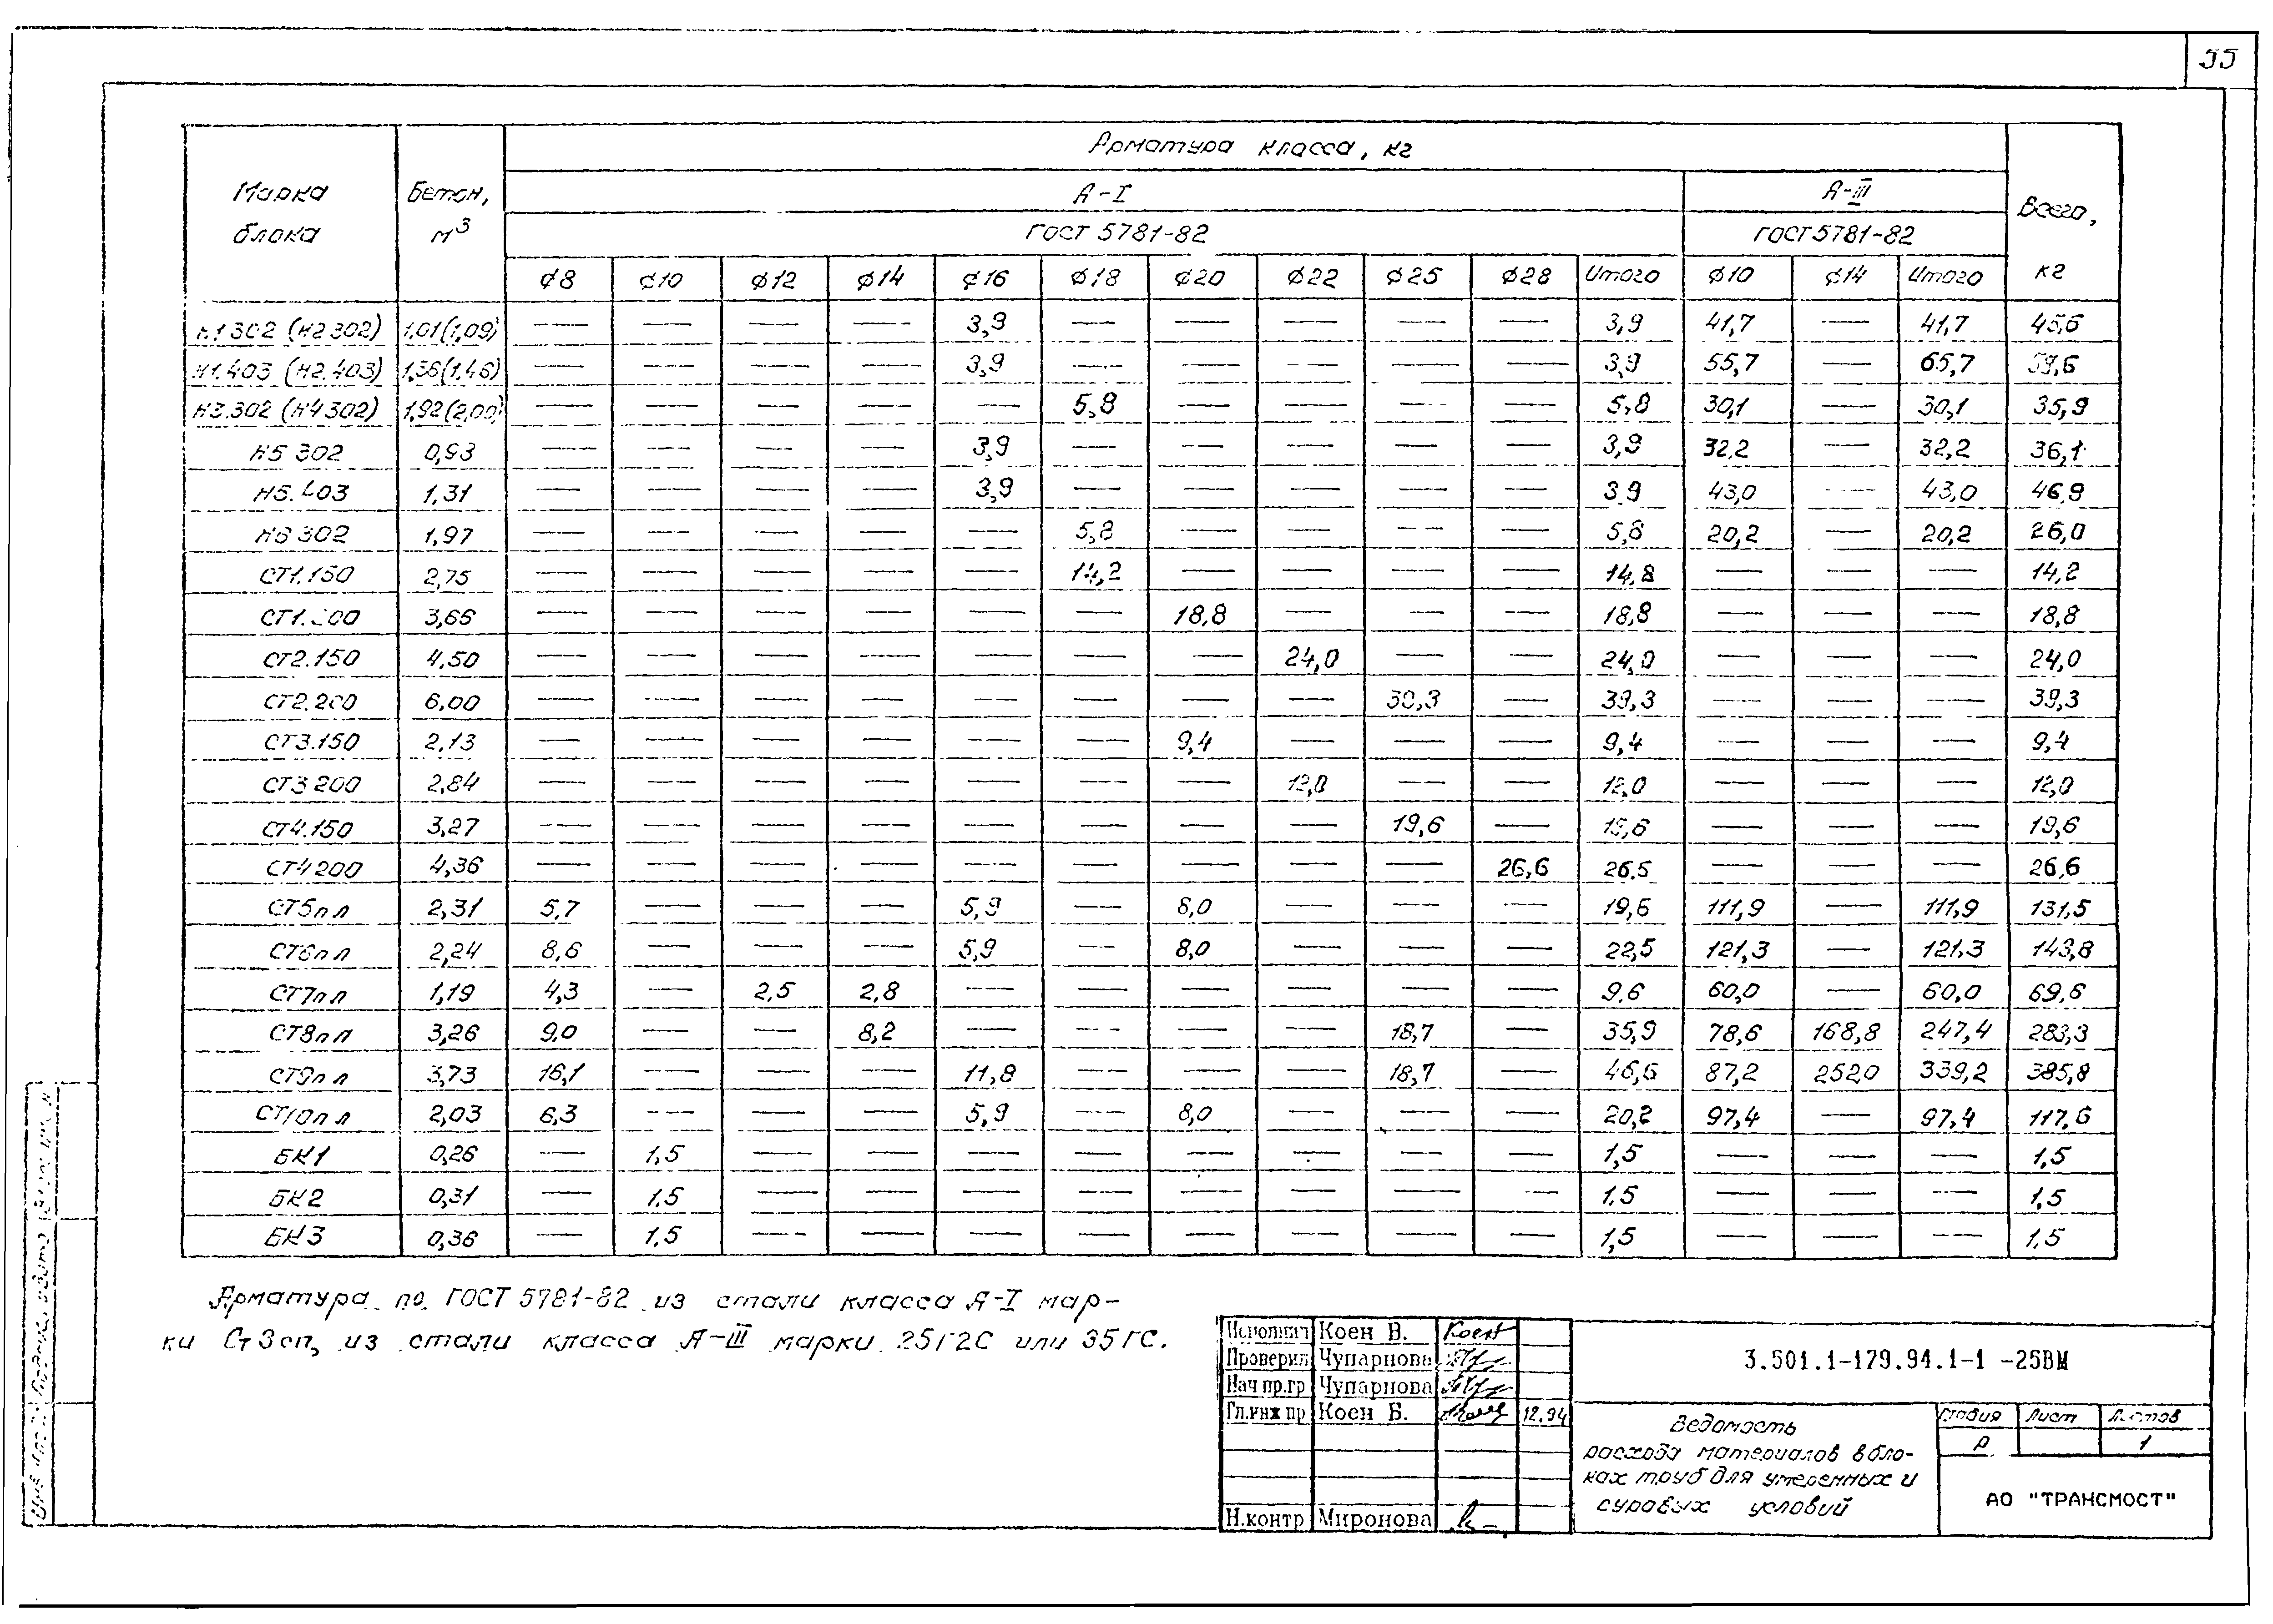 55
Марка блока | Бетон, м³ | Арматура класса, кг | Всего, кг
А-I | А-III
ГОСТ 5781-82 | ГОСТ 5781-82
ф8 | ф10 | ф12 | ф14 | ф16 | ф18 | ф20 | ф22 | ф25 | ф28 | Итого | ф10 | ф14 | Итого
Н1 302 (Н2 302) | 1,01(1,09) | — | — | — | — | 3,9 | — | — | — | — | — | 3,9 | 41,7 | — | 41,7 | 45,6
Н1.403 (Н2.403) | 1,36(1,46) | — | — | — | — | 3,9 | — | — | — | — | — | 3,9 | 55,7 | — | 65,7 | 59,6
Н3.302 (Н4 302) | 1,92(2,00) | — | — | — | — | — | 5,8 | — | — | — | — | 5,8 | 30,1 | — | 30,1 | 35,9
Н5 302 | 0,93 | — | — | — | — | 3,9 | — | — | — | — | — | 3,9 | 32,2 | — | 32,2 | 36,1
Н5.403 | 1,31 | — | — | — | — | 3,9 | — | — | — | — | — | 3,9 | 43,0 | — | 43,0 | 46,9
Н6 302 | 1,97 | — | — | — | — | — | 5,8 | — | — | — | — | 5,8 | 20,2 | — | 20,2 | 26,0
СТ1.150 | 2,75 | — | — | — | — | — | 14,2 | — | — | — | — | 14,8 | — | — | — | 14,2
СТ1.200 | 3,66 | — | — | — | — | — | — | 18,8 | — | — | — | 18,8 | — | — | — | 18,8
СТ2.150 | 4,50 | — | — | — | — | — | — | — | 24,0 | — | — | 24,0 | — | — | — | 24,0
СТ2.200 | 6,00 | — | — | — | — | — | — | — | — | 39,3 | — | 39,3 | — | — | — | 39,3
СТ3.150 | 2,13 | — | — | — | — | — | — | 9,4 | — | — | — | 9,4 | — | — | — | 9,4
СТ3 200 | 2,84 | — | — | — | — | — | — | — | 12,0 | — | — | 12,0 | — | — | — | 12,0
СТ4.150 | 3,27 | — | — | — | — | — | — | — | — | 19,6 | — | 19,6 | — | — | — | 19,6
СТ4 200 | 4,36 | — | — | — | — | — | — | — | — | — | 26,6 | 26,5 | — | — | — | 26,6
СТ5п л | 2,31 | 5,7 | — | — | — | 5,9 | — | 8,0 | — | — | — | 19,6 | 111,9 | — | 111,9 | 131,5
СТ6п л | 2,24 | 8,6 | — | — | — | 5,9 | — | 8,0 | — | — | — | 22,5 | 121,3 | — | 121,3 | 143,8
СТ7п л | 1,19 | 4,3 | — | 2,5 | 2,8 | — | — | — | — | — | — | 9,6 | 60,0 | — | 60,0 | 69,6
СТ8п л | 3,26 | 9,0 | — | — | 8,2 | — | — | — | — | 18,7 | — | 35,9 | 78,6 | 168,8 | 247,4 | 283,3
СТ9п л | 3,73 | 16,1 | — | — | — | 11,8 | — | — | — | 18,7 | — | 46,6 | 87,2 | 252,0 | 339,2 | 385,8
СТ10п л | 2,03 | 6,3 | — | — | — | 5,9 | — | 8,0 | — | — | — | 20,2 | 97,4 | — | 97,4 | 117,6
БК1 | 0,26 | — | 1,5 | — | — | — | — | — | — | — | — | 1,5 | — | — | — | 1,5
БК2 | 0,31 | — | 1,5 | — | — | — | — | — | — | — | — | 1,5 | — | — | — | 1,5
БК3 | 0,36 | — | 1,5 | — | — | — | — | — | — | — | — | 1,5 | — | — | — | 1,5
Арматура по ГОСТ 5781-82 из стали класса А-I мар-
ки Ст 3сп, из стали класса А-III марки 25Г2С или 35ГС.
Исполнил Коен В. Коен
Проверил Чупарнова
Нач пр.гр Чупарнова
Гл.инж пр Коен Б. 12.94
Н.контр Миронова
3.501.1-179.94.1-1 -25ВМ
Ведомость
расхода материалов в бло-
ках труб для умеренных и
суровых условий
Стадия | Лист | Листов
Р | | 1
АО "ТРАНСМОСТ"